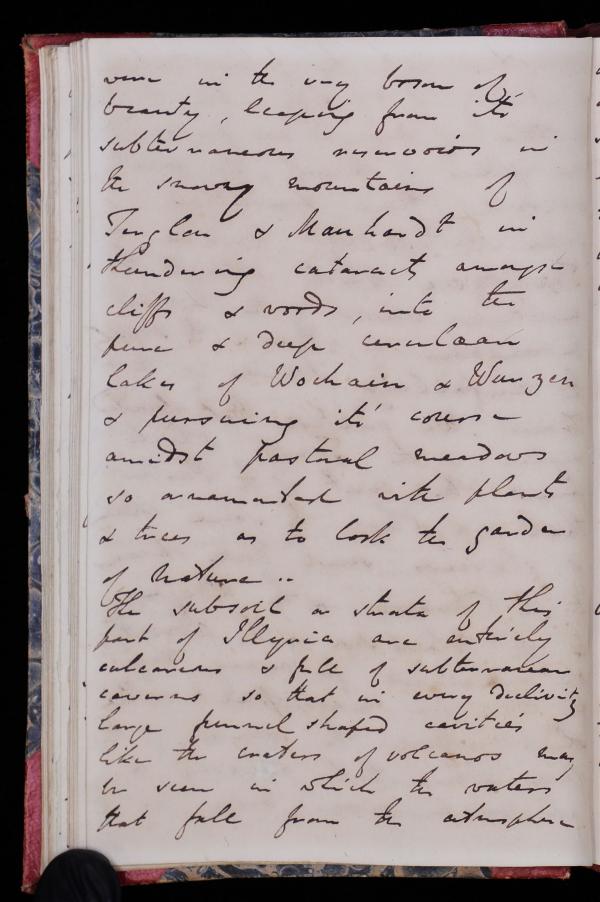 were in the very bosom of
beauty, leaping from it's
subterraneous reservoirs in
the snowy mountains of
Terglou & Manhardt in
thundering cataracts amongst
cliffs & woods, into the
pure & deep cerulaan
lakes of Wochain & Wurzen
& pursuing it's course
amidst pastoral meadows
so ornamented with plants
& trees as to look the garden
of Nature ..
The subsoil or strata of this
part of Illyria are entirely
calcareous & full of subterranean
caverns so that in every declivity
large funnel shaped cavities
like the craters of volcanos may
be seen in which the waters
that fall from the atmosphere